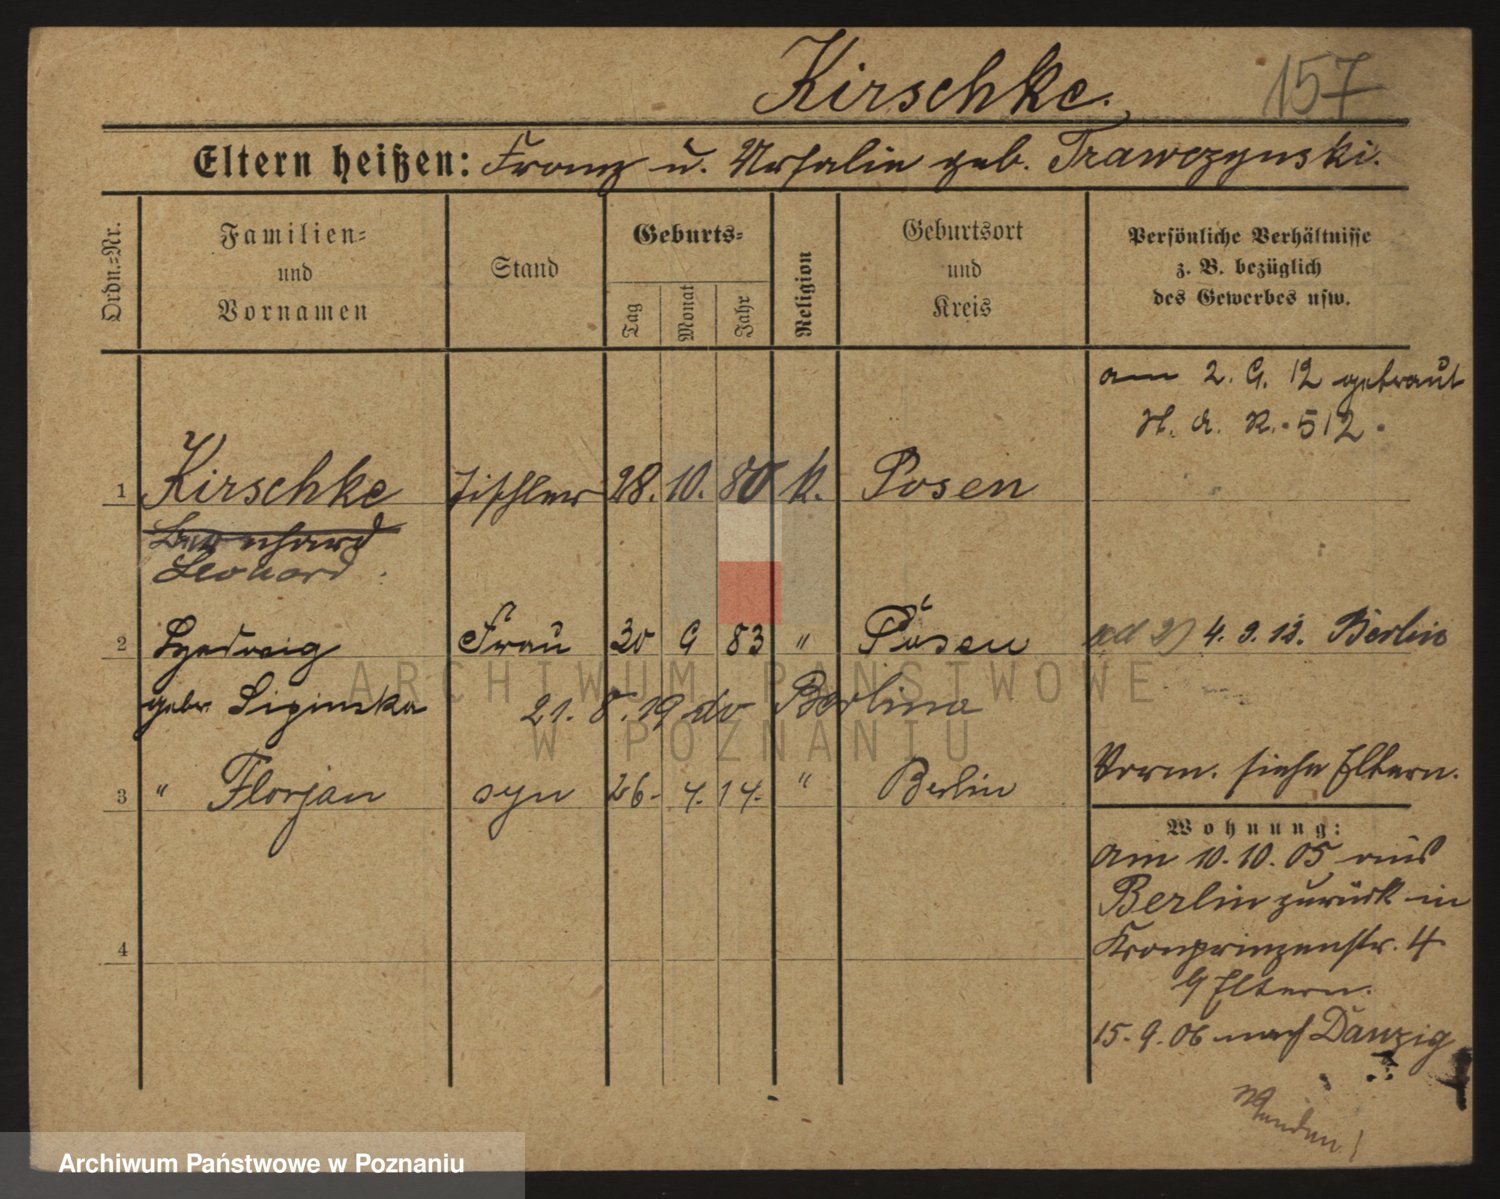 Kirschke.
157
Eltern heißen: Franz u. Ursalie geb. Trawczynski.
Ordn.-Nr.
Familien-
und
Vornamen
Stand
Geburts-
Tag
Monat
Jahr
Religion
Geburtsort
und
Kreis
Persönliche Verhältnisse
z. B. bezüglich
des Gewerbes usw.
am 2. 9. 12 getraut
H. A. R. 512.
1 Kirschke Tischler 28. 10. 80 k. Posen
Bernhard
Leonard
2 Hedwig Frau 30 9 83 " Posen ad 2) 4. 9. 12. Berlin
gebr Lipinska 21. 8. 19 do Berlina
3 " Florjan syn 26. 4. 14. " Berlin
Vorm. siehe Eltern.
Wohnung:
am 10. 10. 05 aus
Berlin zurück in
Kronprinzenstr. 4
b/ Eltern.
15. 9. 06 nach Danzig
4
Wenden!
ARCHIWUM PAŃSTWOWE
W POZNANIU
Archiwum Państwowe w Poznaniu